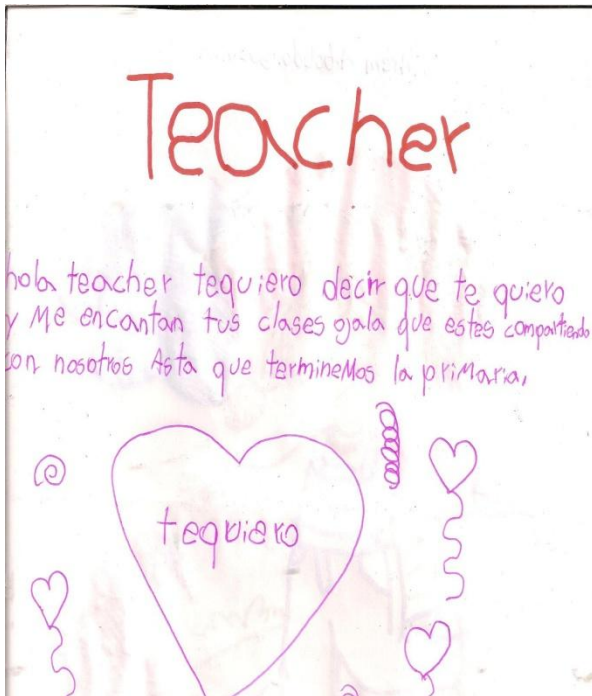 Teacher
hola teacher tequiero decir que te quiero
y Me encantan tus clases ojala que estes compartiendo
con nosotros Asta que termineMos la priMaria.
tequiero